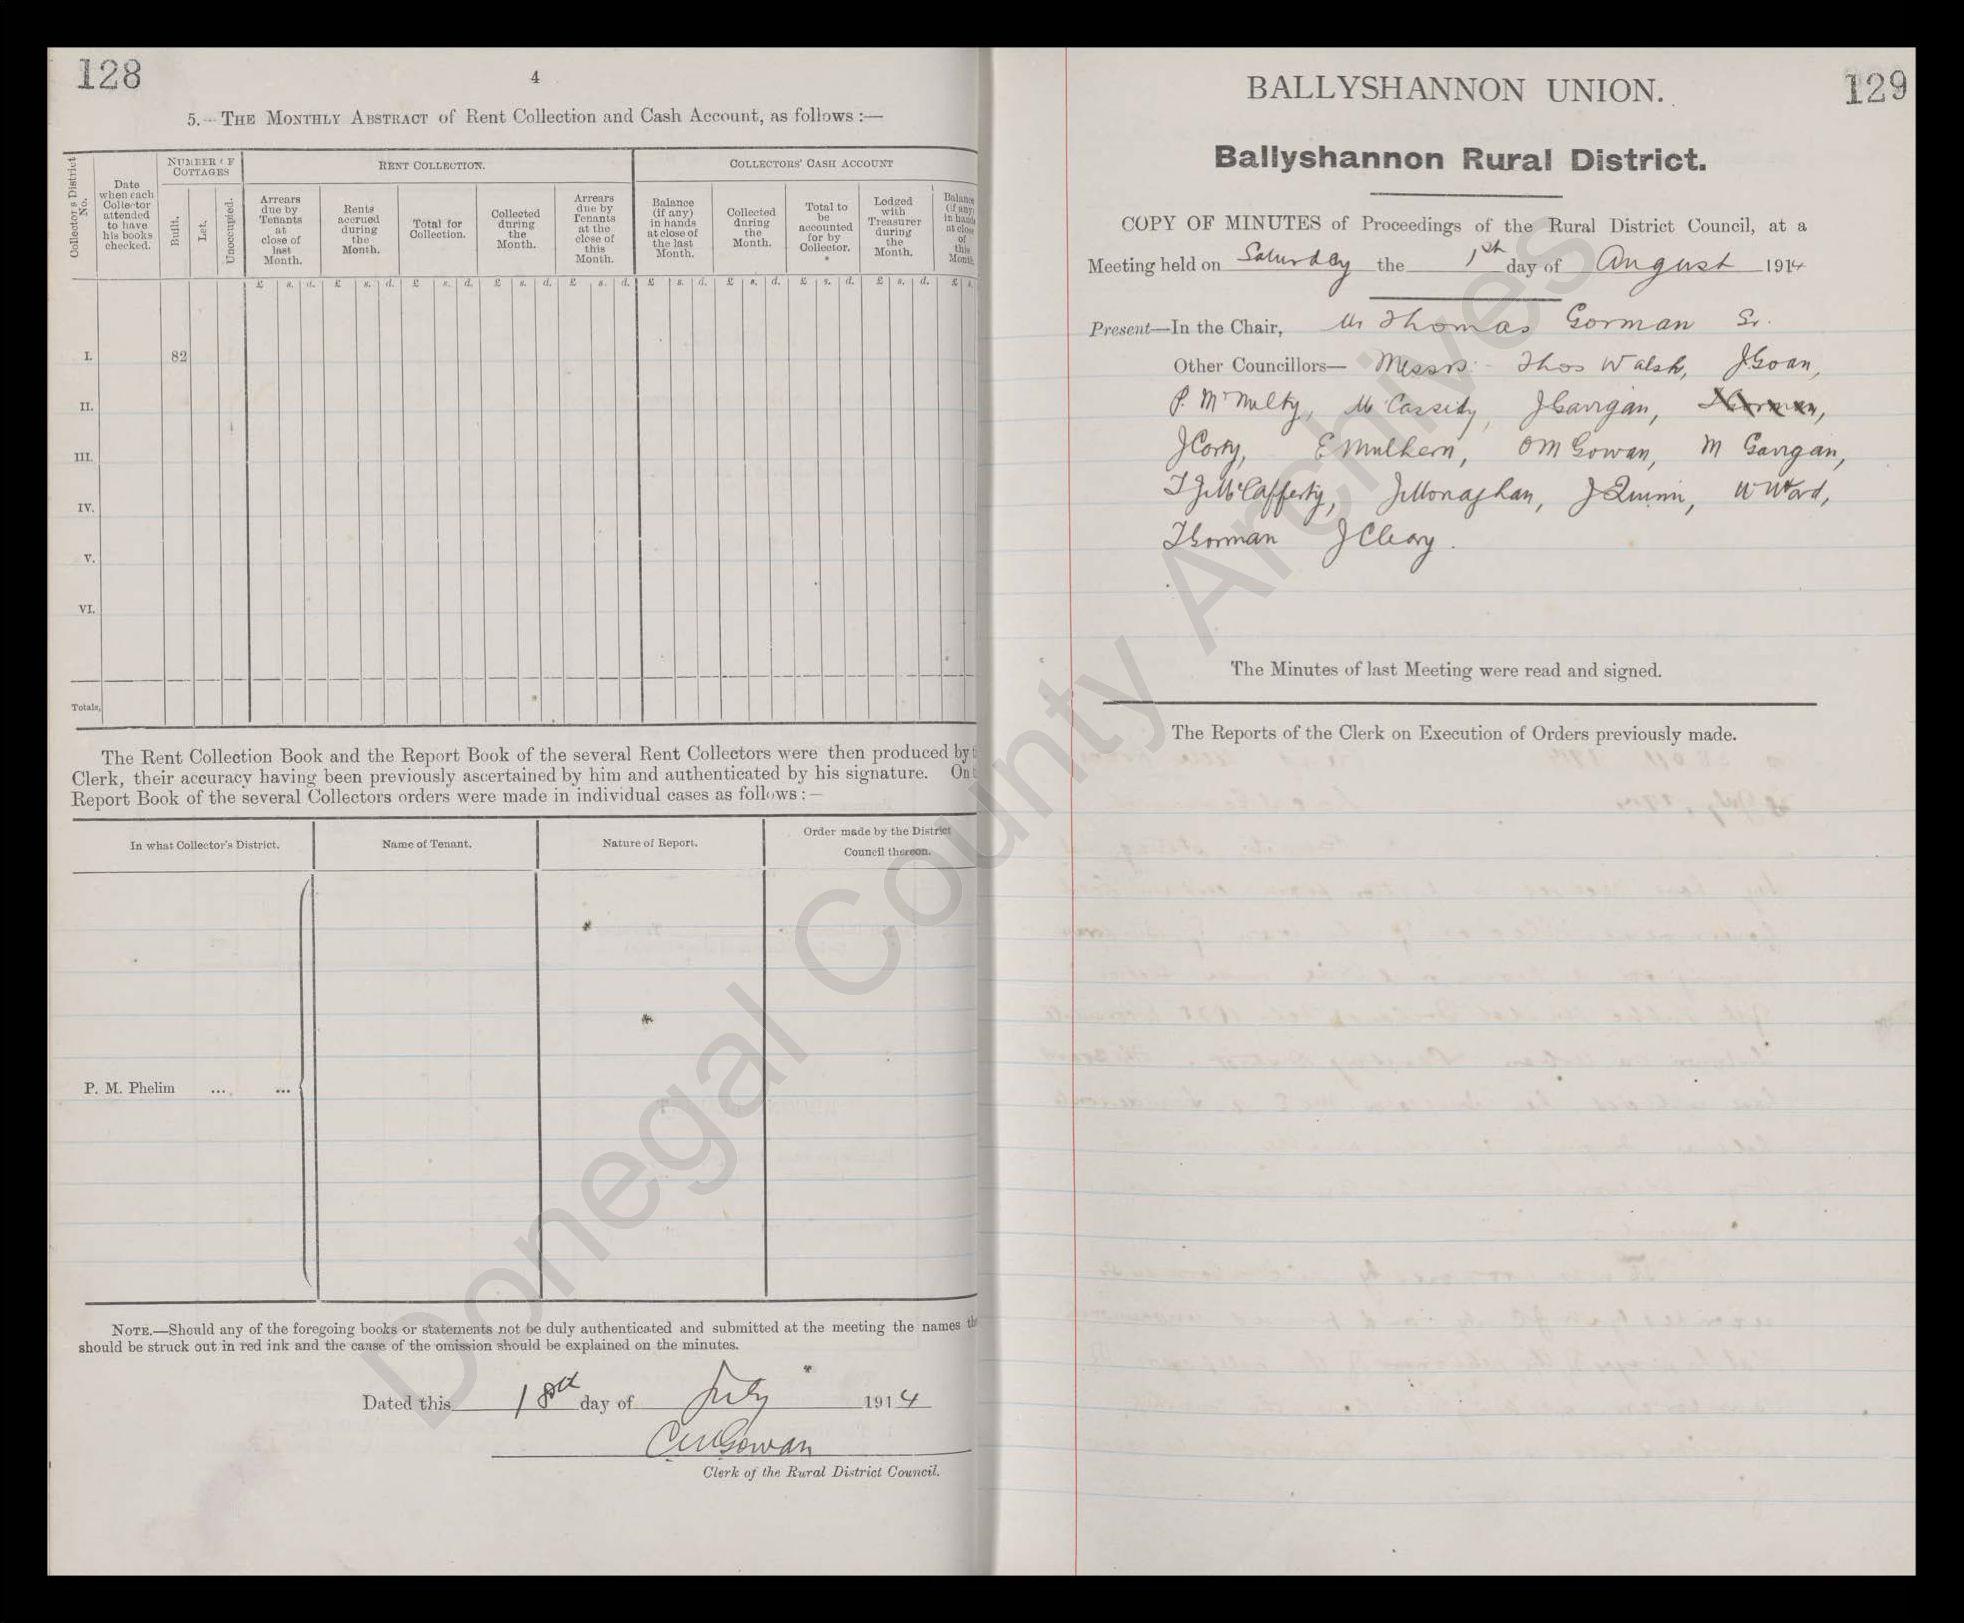 128
4
5.—THE MONTHLY ABSTRACT of Rent Collection and Cash Account, as follows :—
Collector's District No.
Date when each Collector attended to have his books checked.
NUMBER OF COTTAGES
Built.
Let.
Unoccupied.
RENT COLLECTION.
Arrears due by Tenants at close of last Month.
Rents accrued during the Month.
Total for Collection.
Collected during the Month.
Arrears due by Tenants at the close of this Month.
COLLECTORS' CASH ACCOUNT
Balance (if any) in hands at close of the last Month.
Collected during the Month.
Total to be accounted for by Collector.
Lodged with Treasurer during the Month.
Balance (if any) in hands at close of this Month.
£ s. d. £ s. d. £ s. d. £ s. d. £ s. d. £ s. d. £ s. d. £ s. d. £ s. d. £ s.
I. 82
II.
III.
IV.
V.
VI.
Totals,
The Rent Collection Book and the Report Book of the several Rent Collectors were then produced by
Clerk, their accuracy having been previously ascertained by him and authenticated by his signature. On
Report Book of the several Collectors orders were made in individual cases as follows :—
In what Collector's District.
Name of Tenant.
Nature of Report.
Order made by the District Council thereon.
P. M. Phelim ... ...
NOTE.—Should any of the foregoing books or statements not be duly authenticated and submitted at the meeting the names
should be struck out in red ink and the cause of the omission should be explained on the minutes.
Dated this 18th day of July 1914
C McGowan
Clerk of the Rural District Council.
129
BALLYSHANNON UNION.
Ballyshannon Rural District.
COPY OF MINUTES of Proceedings of the Rural District Council, at a
Meeting held on Saturday the 1st day of August 1914
Present—In the Chair, Mr Thomas Gorman Sr.
Other Councillors— Messrs Thos Walsh, J Goan,
P. McNulty, M Cassidy, J Gavigan, T Gorman,
J Corry, E Mulhern, O McGowan, M Gavigan,
T J McCafferty, J Monaghan, J Quinn, W Ward,
T Gorman J Cleary.
The Minutes of last Meeting were read and signed.
The Reports of the Clerk on Execution of Orders previously made.
Donegal County Archives